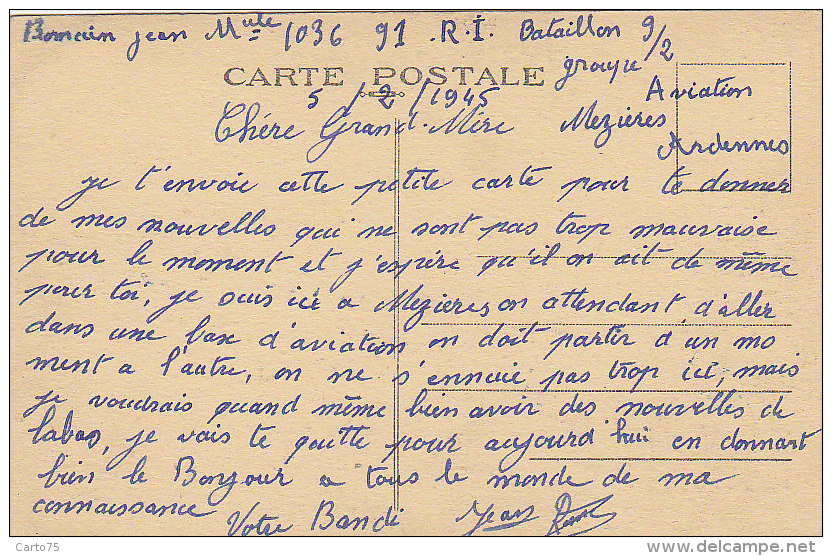 Romain Jean Mule 1036 91 . R. I. Bataillon 9/2
groupe
CARTE POSTALE
Aviation
5 / 2 / 1945
Chére Grand-Mére Mezières
Ardennes
je t'envoie cette petite carte pour te donner
de mes nouvelles qui ne sont pas trop mauvaise
pour le moment et j'espère qu'il on ait de même
pour toi, je suis ici a Mezières on attendant d'aller
dans une base d'aviation on doit partir d'un mo
ment a l'autre, on ne s'ennuie pas trop ici, mais
je voudrais quand même bien avoir des nouvelles de
labas, je vais te quitte pour aujourd'hui en donnant
bien le Bonjour a tous le monde de ma
connaissance
Votre Bandi Jean
Carto75
www.delcampe.net